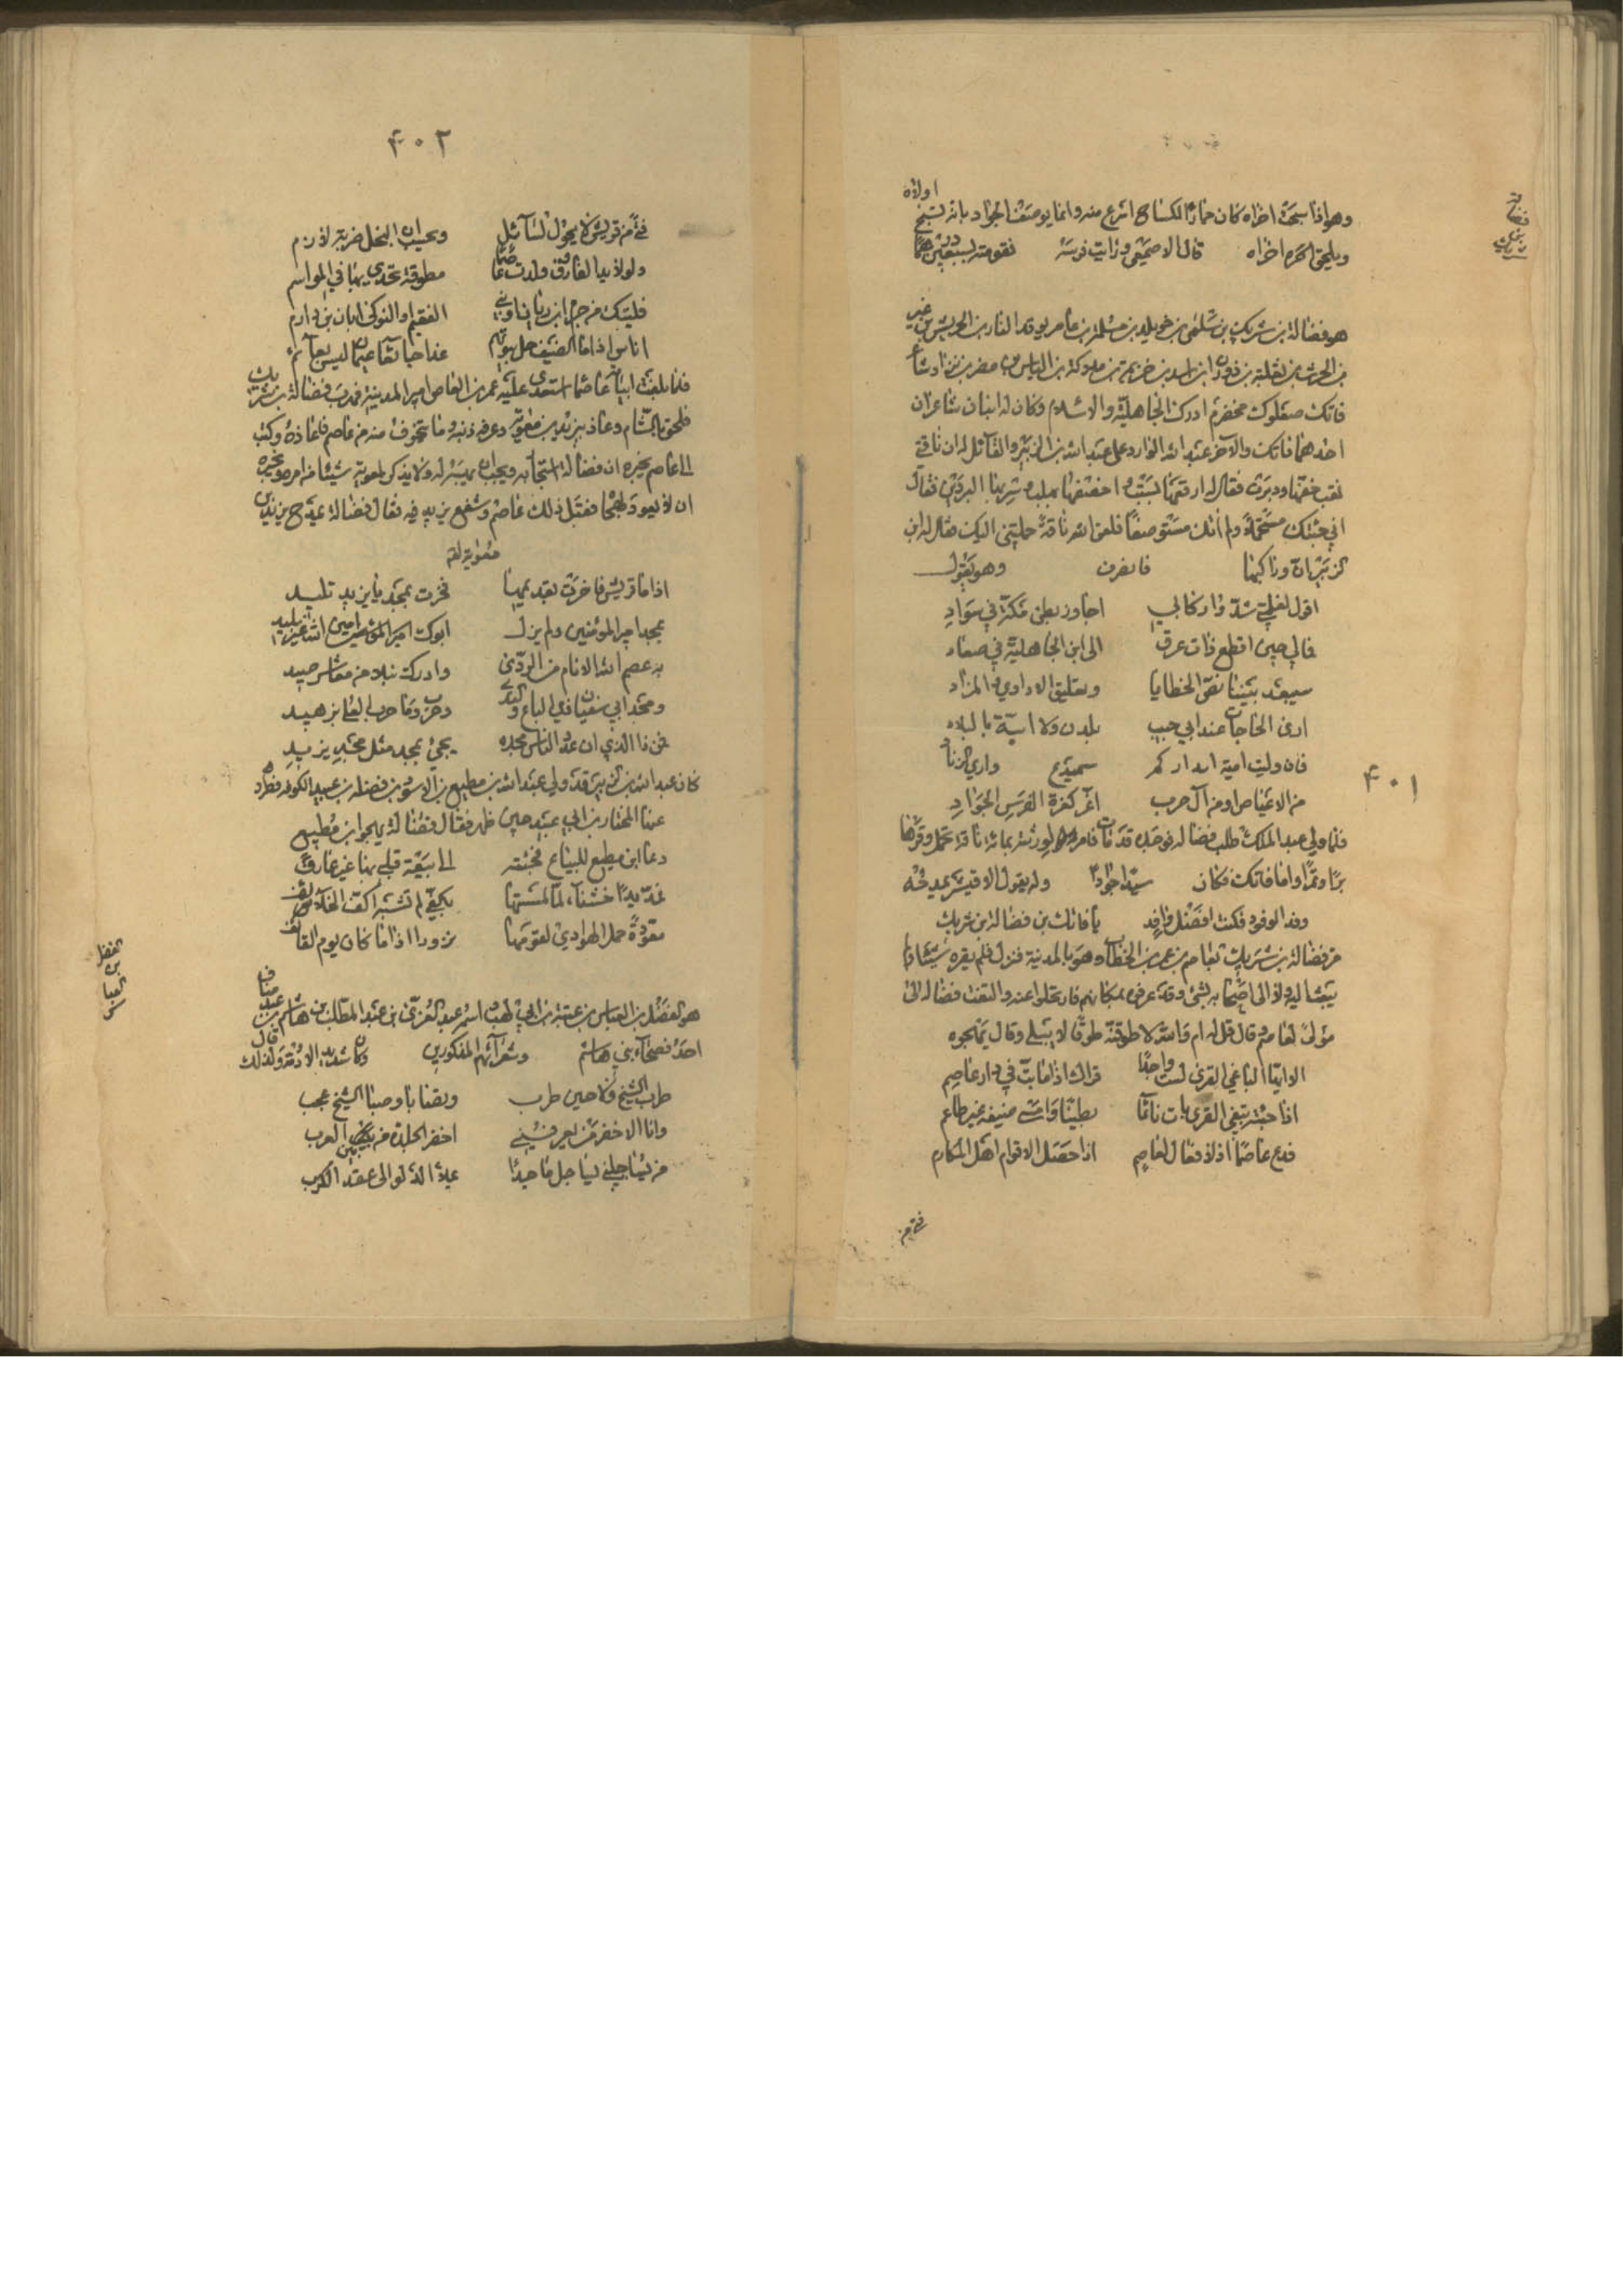 اولاده
وهو اذا سبحة اخراه كان حماد الكساح اسرع منه وانما يوصف الجواد بانه تسبح
ويلحق اخراه قال الاصمعي ورايت فرسه نقومته بسبعين درهما
فضالة بن شريك
هو فضالة بن شريك بن سلمى بن خويلد بن مسلمة بن عامر موقد النار بن الحريش بن غير
بن الحرث بن ثعلبة بن دودان ابن اسد بن خزيمة بن مدركة بن الياس بن مضر بن نزار شاعر
فاتك صعلوك مخضرم ادرك الجاهلية والاسلام وكان له ابنان شاعران
احدهما فاتك والآخر عبد الله الوارد على عبد الله بن الزبير والقائل له ان ناقتي
نقب خفها ودبرت فقال له ارقعها بسبت واخصفها بهلب وسر بها البردين فقال
اني جئتك مستحملا ولم آتك مستوصفا فلعن الله ناقة حملتني اليك فقال له ابن
الزبير ان وراكبها فانصرف وهو يقول
اقول لغلمتي شدوا ركابي اجاوز بطن مكة في سواد
فمالي حين اقطع ذات عرق الى ابن الجاهلية في معاد
سيبعد بيننا نص المطايا وتعليق الاداوي والمزاد
ارى الحاجات عند ابي خبيب نكدن ولا امية بالبلاد
فان وليت امية ابدلوكم سميدع واري الزناد
٤٠١
من الاعياص او من آل حرب اغر كغرة الفرس الجواد
فلما ولي عبد الملك طلب فضالة فوجده قد مات فامر لورثته بمائة ناقة تحمل وقرها
برا وتمرا واما فاتك فكان سيدا جوادا وله يقول الاقيشر يمدحه
وفد الوفود فكنت افضل وافد يا فاتك بن فضالة بن شريك
مر فضالة بن شريك بعاصم بن عمر بن الخطاب وهو بالمدينة فنزل فلم يقره شيئا ولم
يبعث اليه ولا الى اصحابه بشئ وقد عرفوه بمكانهم فارتحلوا عنه والتفت فضالة الى
مولى لعاصم وقال قل له ام والله لاطوقنك طوقا لا يبلى وقال يهجوه
الا ايها الباغي القرى لست واجدا قراك اذا ما بت في دار عاصم
اذا جئته تبغي القرى بات نائما بطينا وامسى ضيفه غير طاعم
فدع عاصما اف لافعال عاصم اذا حصل الاقوام اهل المكارم
فتى من
٤٠٢
فتى من قريش لا يجود لسائل ويحسب ان البخل ضربة لازم
ولولا يد الفاروق قلدت عاصما مطوقة يحدى بها في المواسم
فليتك من جرم ابن زبان او بني الفقيم او النوكى ابان بن دارم
اناس اذا ما الضيف حل بيوتهم غدا جائعا عيمان ليس بغانم
فلما بلغت ابياته عاصما استعدى عليه عمرو بن العاص امير المدينة فهرب فضالة بن شريك
فلحق بالشام وعاذ بيزيد بن معوية وعرفه ذنبه وما تخوف منه من عاصم فاعاذه وكتب
الى عاصم يخبره ان فضالة استجار به ويحب ان يهبه له ولا يذكر لمعوية شيئا من امره ويخبره
ان لا يعود لهجائه فقبل ذلك عاصم وشفع يزيد فيه فقال فضالة يمدح يزيد بن
معوية لقد
اذا ما قريش فاخرت بقديمها فخرت بمجد يا يزيد تليد
بمجد امير المؤمنين ولم يزل ابوك امير المؤمنين امين الله غير بليد
به عصم الله الانام من الردى وادرك تبلا من معاشر صيد
ومجد ابي سفيان ذي الباع والندى وحرب وما حرب العلا بزهيد
فمن ذا الذي ان عدد الناس مجده يجئ بمجد مثل مجد يزيد
كان عبد الله بن الزبير قد ولى عبد الله بن مطيع بن الاسود بن فضلة بن عبيد الكوفة فطرده
عنها المختار بن ابي عبيد حين ظهر فقال فضالة يهجو ابن مطيع
دعا ابن مطيع للبياع فجئته الى بيعة قلبي بها غير عارف
فمد يدا خشناء لما لمستها بكفي لم تشبه اكف الخلائف
معودة حمل الهوادي لقومها فرورا اذا ما كان يوم التسايف
الفضل بن العباس
هو الفضل بن العباس بن عتبة بن ابي لهب اسمه عبد العزى بن عبد المطلب بن هاشم بن عبد مناف
احد فصحاء بني هاشم وشعرائهم المذكورين وكان شديد الادمة ولذلك قال
طرب الشيخ ولا حين طرب وتصابا وصبا الشيخ عجب
وانا الاخضر من يعرفني اخضر الجلدة من بيت العرب
من يساجلني يساجل ماجدا يملا الدلو الى عقد الكرب